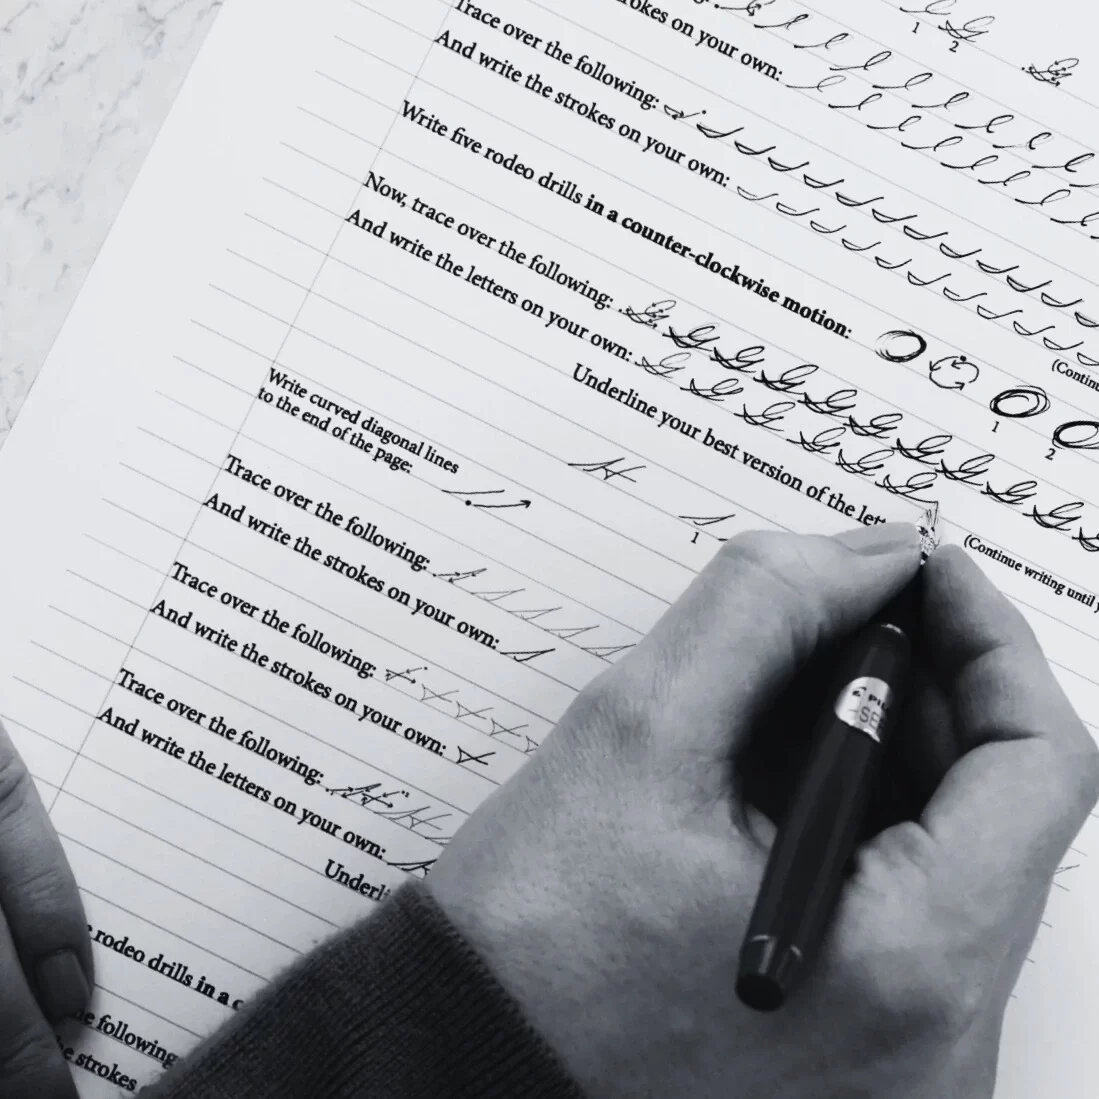 1 2
strokes on your own:
Trace over the following:
And write the strokes on your own:
Write five rodeo drills in a counter-clockwise motion:
1 2
(Continue
Now, trace over the following: G G G G G G G G G G
And write the letters on your own: G G G G G G
Underline your best version of the lett
(Continue writing until
Write curved diagonal lines
to the end of the page:
H
1
Trace over the following:
And write the strokes on your own:
Trace over the following:
And write the strokes on your own:
Trace over the following: H H H
And write the letters on your own:
Underli
rodeo drills in a c
the following
the strokes
PIL